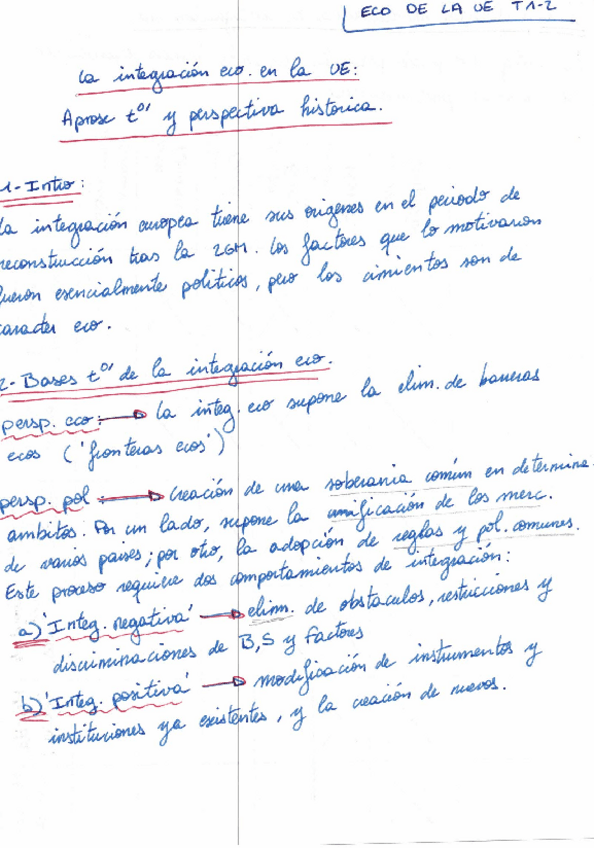 ECO DE LA UE T1-2
La integración eco. en la UE:
Aprox tº' y perspectiva histórica.
1- Intro:
La integración europea tiene sus origenes en el periodo de
reconstrucción tras la 2GM. Los factores que lo motivaron
fueron esencialmente políticos, pero los cimientos son de
caracter eco.
2- Bases tº' de la integración eco.
persp. eco: → la integ. eco supone la elim. de barreras
ecos ('fronteras ecos')
persp. pol: → creación de una soberania común en determina.
ambitos. Por un lado, supone la unificación de los merc.
de varios paises; por otro, la adopción de reglas y pol. comunes.
Este proceso requiere dos comportamientos de integración:
a) 'Integ. negativa' → elim. de obstaculos, restricciones y
discriminaciones de B,S y Factores
b) 'Integ. positiva' → modificación de instrumentos y
instituciones ya existentes, y la creación de nuevos.